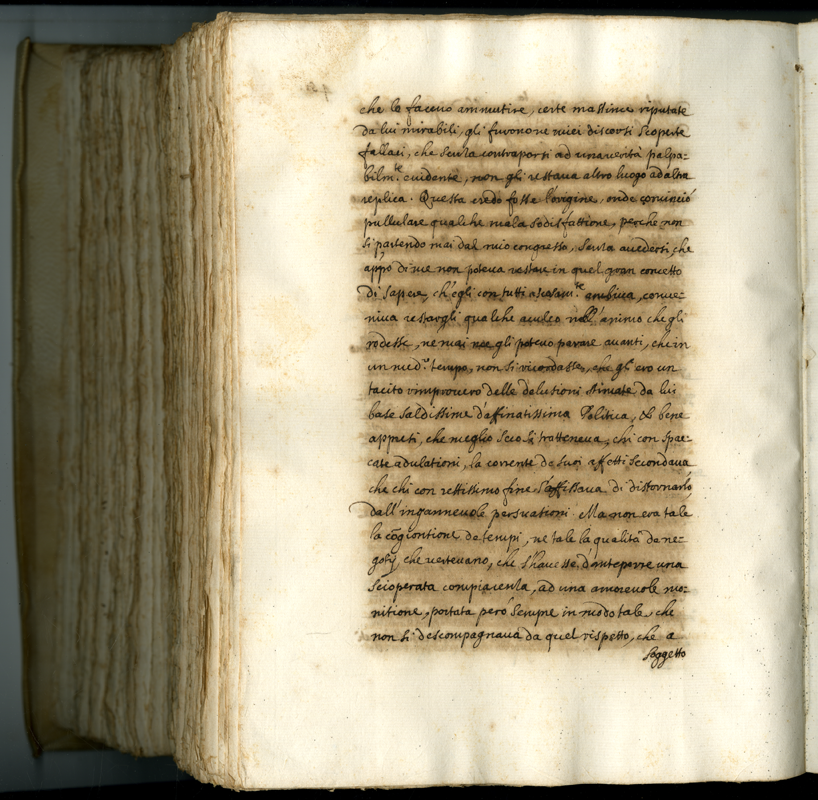 che lo faceuo ammutire, certe massime riputate
da lui mirabili, gli furono ne miei discorsi scoperte
fallaci, che senza contraporsi ad una verità palpa=
bilm.te euidente, non gli restaua altro luogo ad altra
replica. Questa credo fosse l'origine, onde cominciò
pullulare qualche mala sodisfattione, perche non
si partendo mai dal mio congresso, senza auedersi, che
appò di me non poteua restare in quel gran concetto
di sapere, ch'egli con tutti ambiua, conue=
niua restargli qualche aculeo nell'animo che gli
rodesse, ne mai gli poteuo parare auanti, che in
un med.o tempo, non si ricordasse, che gli ero un
tacito rimprouero delle delusioni stimate da lui
base saldissime d'affinatissima Politica, & bene
appresi, che meglio seco si tratteneua, chi con spac=
cate adulationi, la corrente de suoi affetti secondaua
che chi con rettissimo fine s'affissaua di distornarlo
dall'inganneuole persuationi. Ma non era tale
la cōgiontione de tempi, ne tale la qualità de ne=
gotij, che uerteuano, che s'hauesse d'anteporre una
scioperata compiacenza, ad una amoreuole mo=
nitione, portata però sempre in modo tale, che
non si descompagnaua da quel rispetto, che a
soggetto